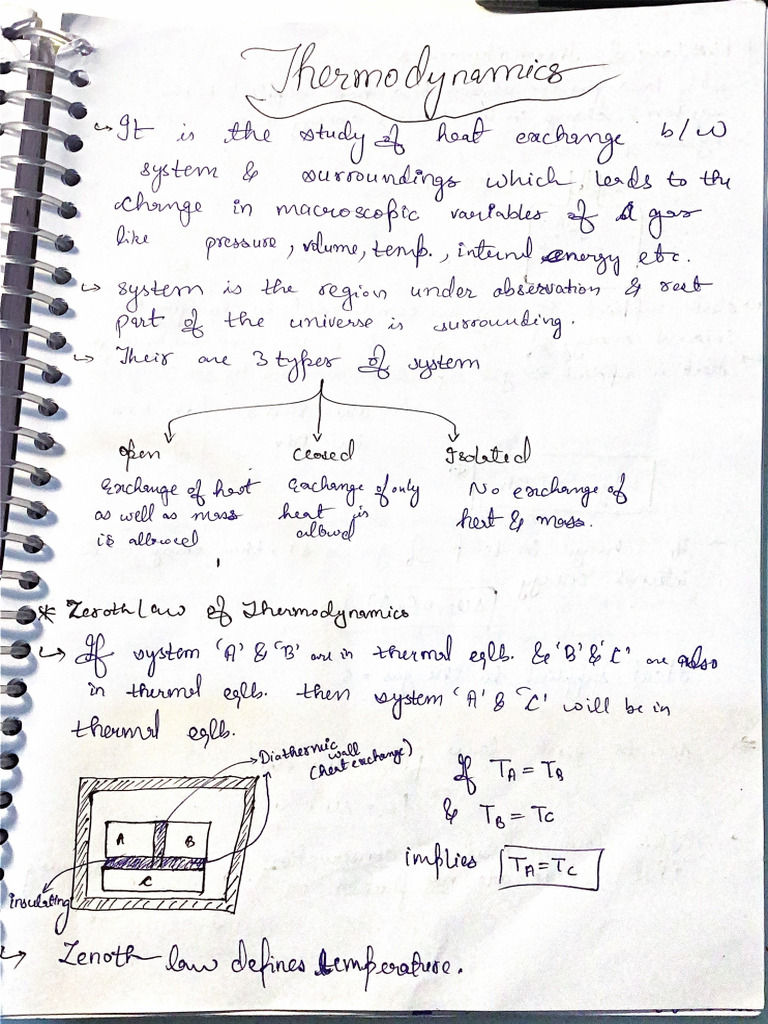 Thermodynamics
↳ It is the study of heat exchange b/w
system & surroundings which, leads to the
change in macroscopic variables of a gas
like pressure, volume, temp., internal energy etc.
↳ system is the region under observation & rest
part of the universe is surrounding.
↳ Their are 3 types of system
Open
Closed
Isolated
Exchange of heat
as well as mass
is allowed
Exchange of only
heat is
allowd
No exchange of
heat & mass.
* Zeroth Law of Thermodynamics
↳ If system 'A' & 'B' are in thermal eqlb. & 'B' & 'C' are also
in thermal eqlb. then system 'A' & 'C' will be in
thermal eqlb.
Diathermic
wall
(heat exchange)
A
B
C
insulating
If T_A = T_B
& T_B = T_C
implies T_A = T_C
↳ Zenoth law defines temperature.